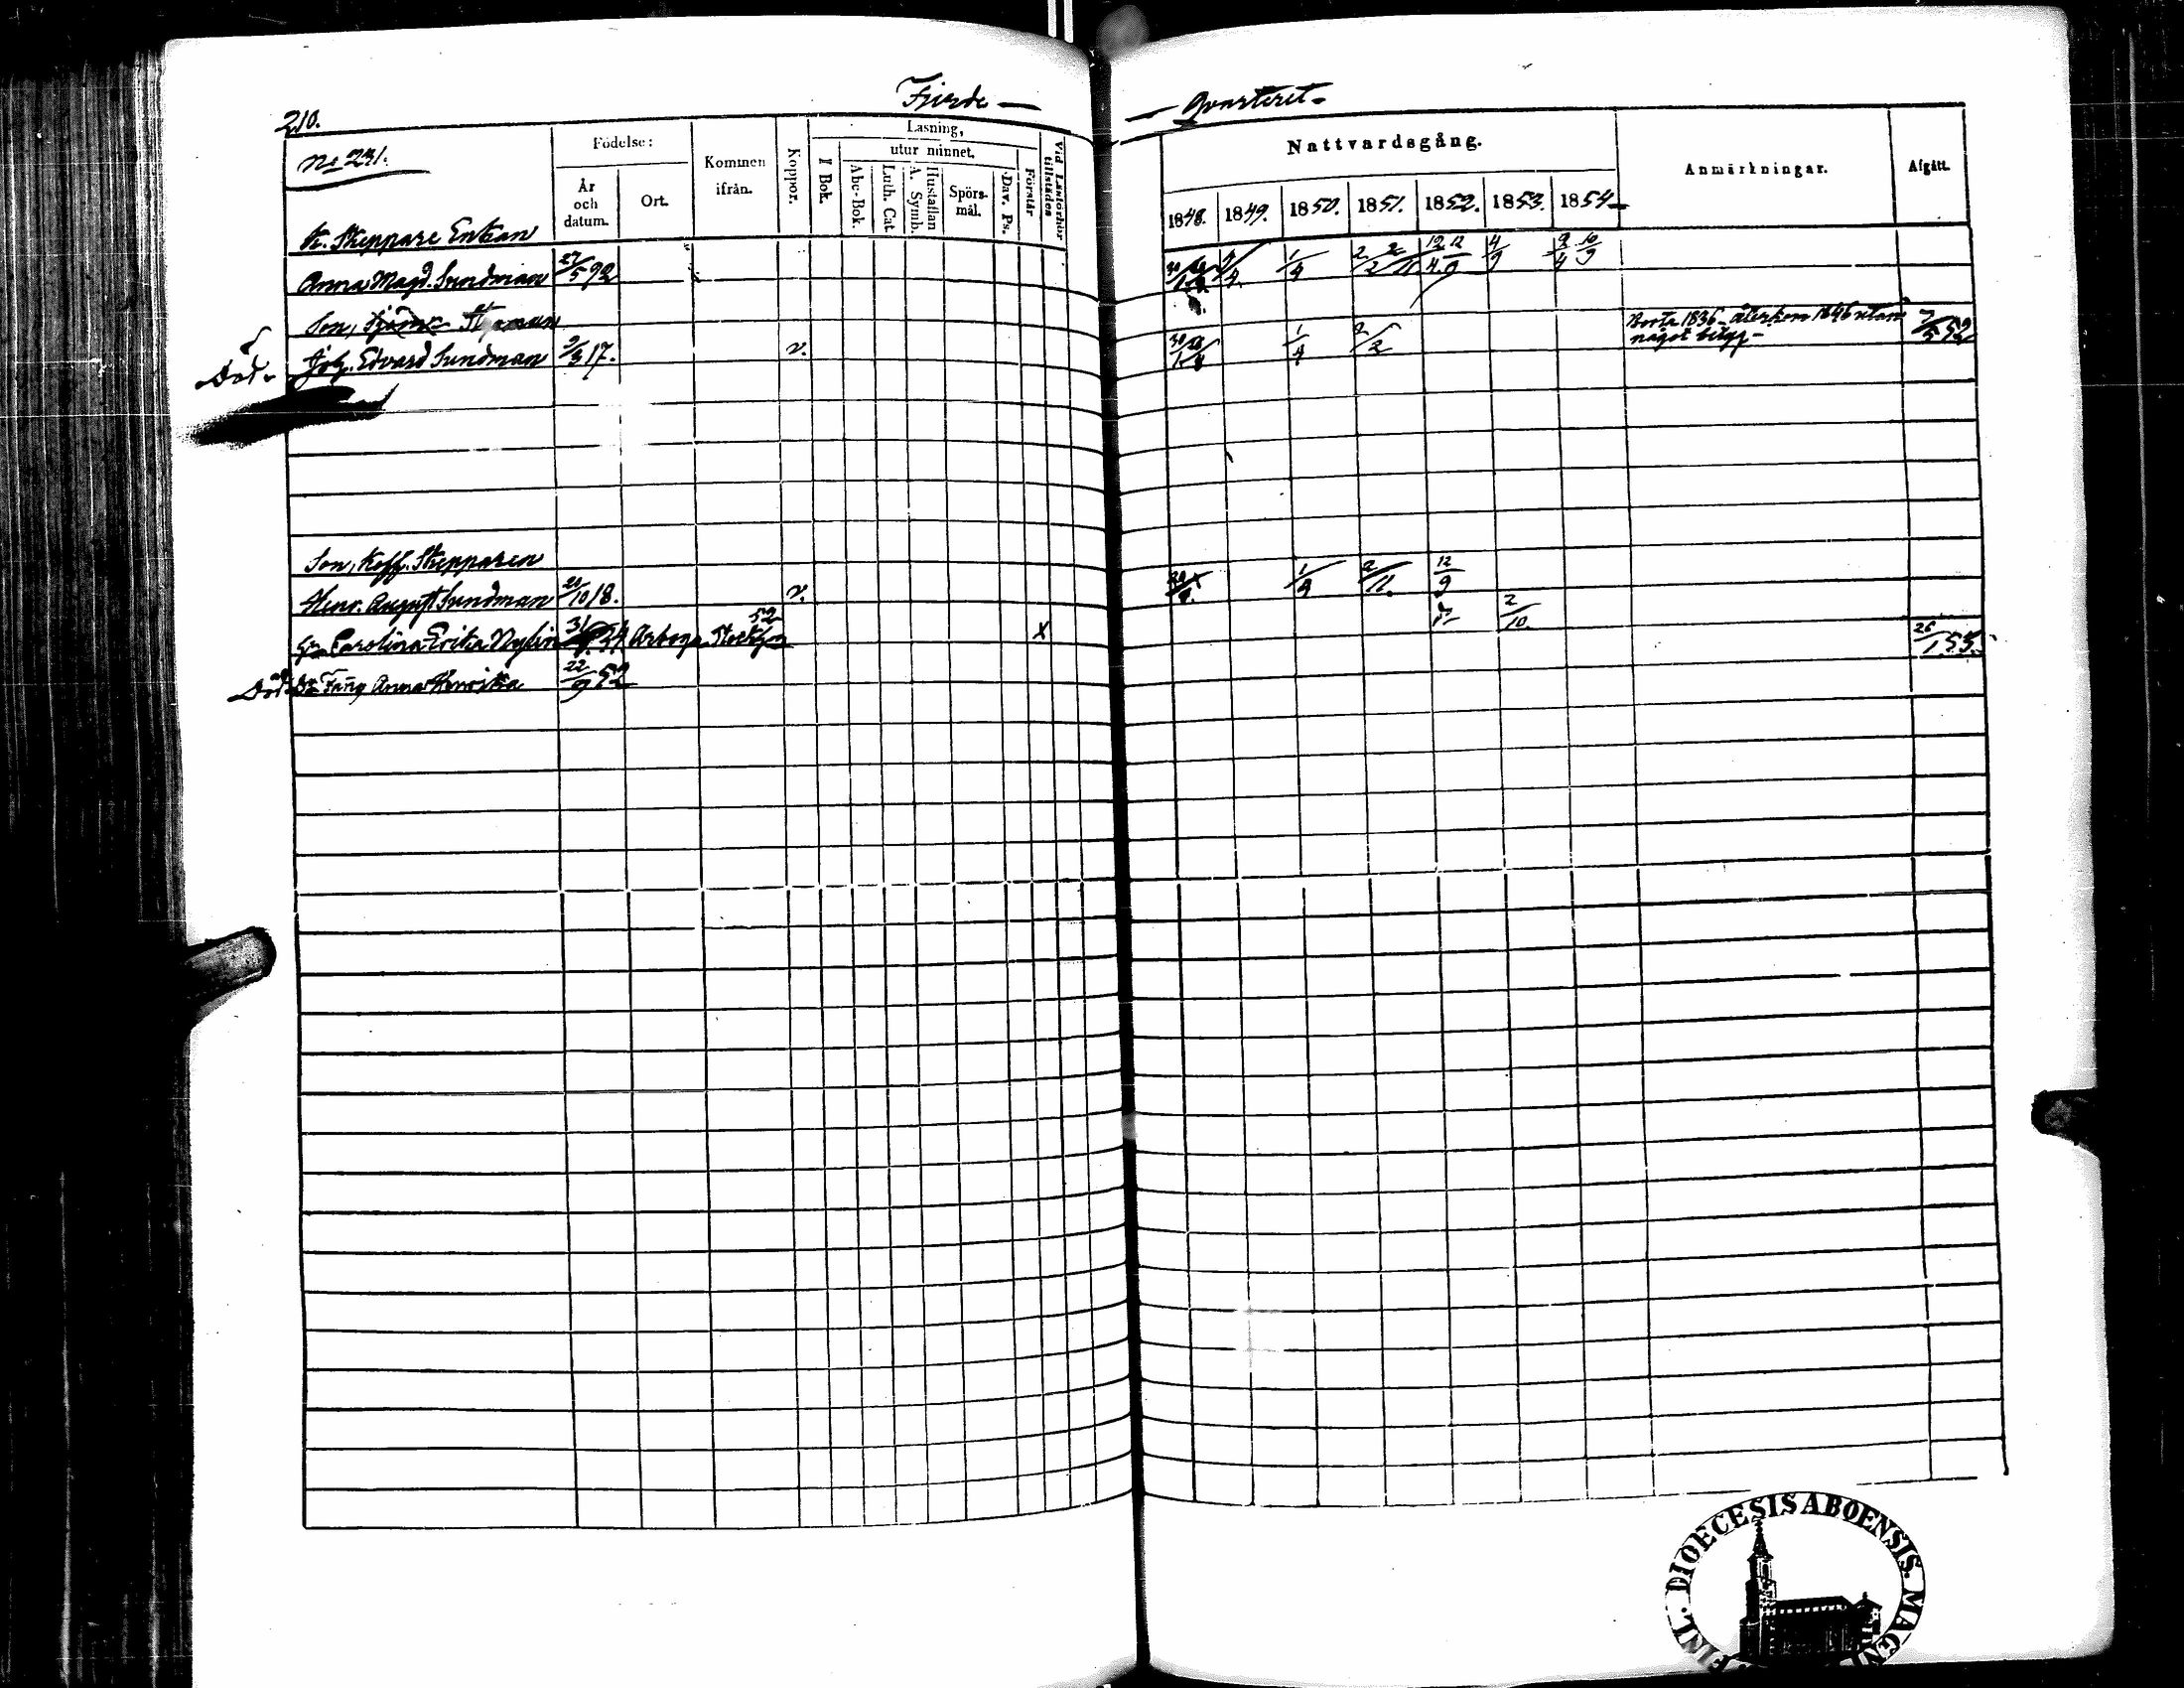 210.
Fjerde —
— Qvarteret -
No 231.
Födelse:
År och datum.
Ort.
Kommen ifrån.
Koppor.
Läsning,
I Bok.
utur minnet.
Abc-Bok.
Luth. Cat.
Hustaflan A. Symb.
Spörsmål.
Dav. Ps.
Förstår
Vid Läsförhör tillstädes
Nattvardsgång.
1848. 1849. 1850. 1851. 1852. 1853. 1854
Anmärkningar.
Afgått.
K. Skeppare Enkan
Anna Magd. Sundman 27/5 92
1/4 2/2 12/4 12/9 4/9 9/4 10/9
Son, Sjöm. Styrman
Borta 1836 - återkom 1846 utan
Död. Joh. Edvard Sundman 9/3 17. v. 1/4 2/2 något betyg - 7/5 52
Son, Koff. Skepparen
Henr. August Sundman 20/10 18. v. 1/4 2/11. 12/9
52
Carolina Erika Nylin 31 24 Arboga Stockh. X 2/10. 26/1 55.
Död Anna Henrika 22/9 52
FINL. DIOECESIS ABOENSIS. MAGNI